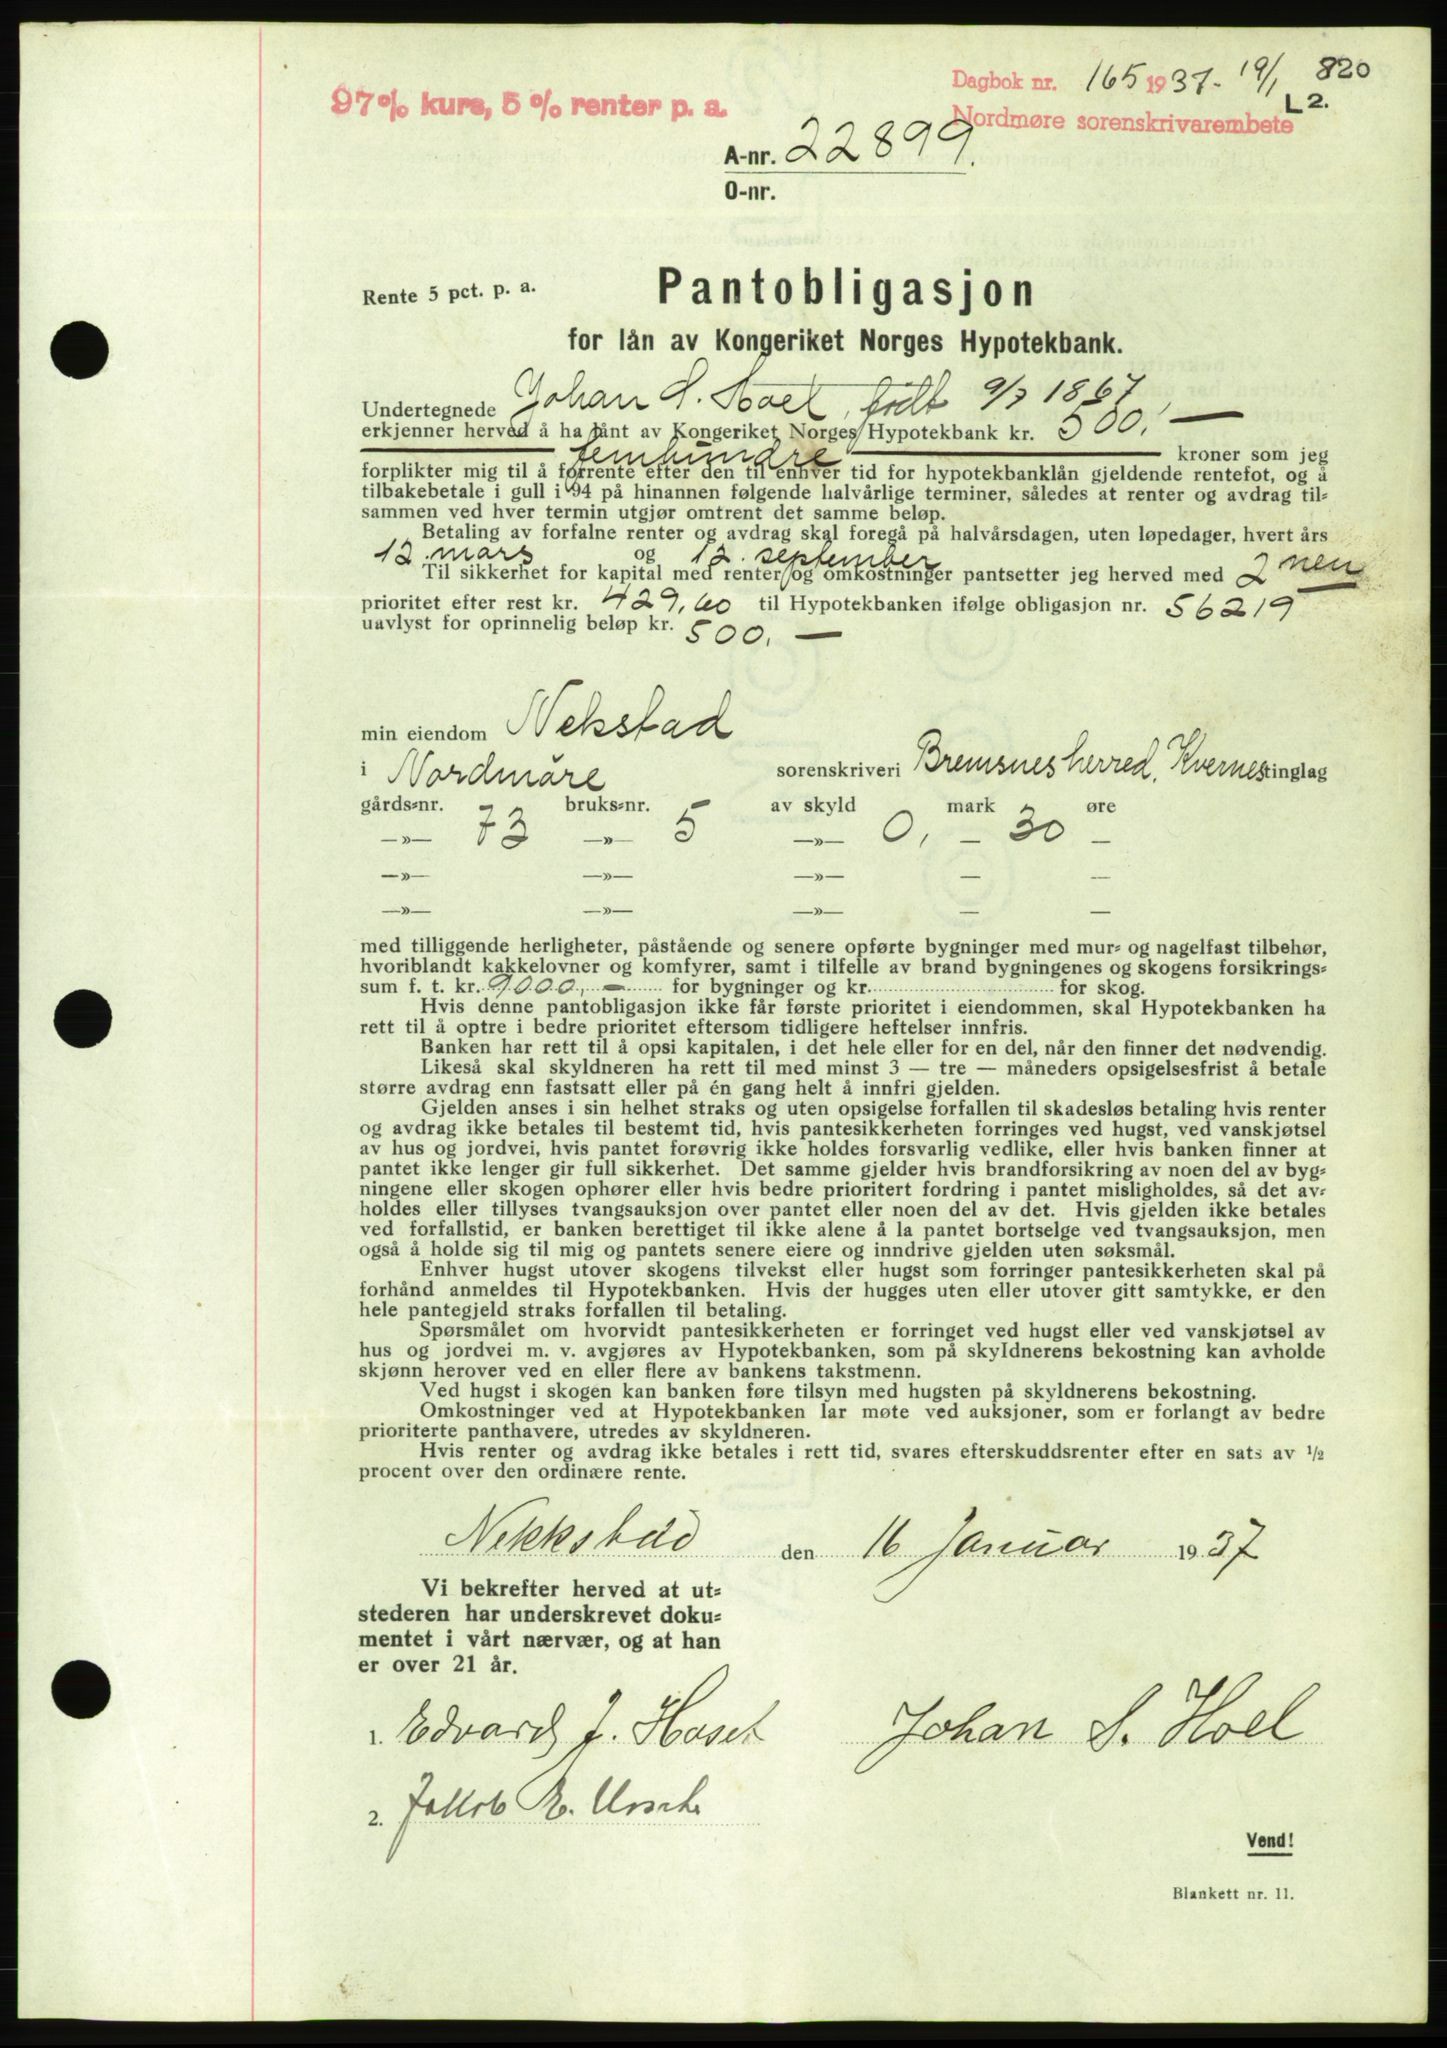 97% kurs, 5 % renter p. a.
Dagbok nr. 165 1937 - 19/1 820
L 2.
Nordmøre sorenskrivarembete
A-nr. 22899.
O-nr.
Rente 5 pct. p. a.
Pantobligasjon
for lån av Kongeriket Norges Hypotekbank.
Undertegnede Johan S. Hoel, født 9/7 1867,
erkjenner herved å ha lånt av Kongeriket Norges Hypotekbank kr. 500,—
femhundre kroner som jeg
forplikter mig til å forrente efter den til enhver tid for hypotekbanklån gjeldende rentefot, og å
tilbakebetale i gull i 94 på hinannen følgende halvårlige terminer, således at renter og avdrag til=
sammen ved hver termin utgjør omtrent det samme beløp.
Betaling av forfalne renter og avdrag skal foregå på halvårsdagen, uten løpedager, hvert års
12. mars og 12. september
Til sikkerhet for kapital med renter og omkostninger pantsetter jeg herved med 2 nen
prioritet efter rest kr. 429,60 til Hypotekbanken ifølge obligasjon nr. 56219
uavlyst for oprinnelig beløp kr. 500,—
min eiendom Nekstad
i Nordmøre sorenskriveri Bremsnes herred, Kvernes tinglag
gårds=nr. bruks=nr. av skyld mark øre
—»— 73 —»— 5 —»— 0, — 30 —
—»— —»— —»— — —
—»— —»— —»— — —
med tilliggende herligheter, påstående og senere opførte bygninger med mur= og nagelfast tilbehør,
hvoriblandt kakkelovner og komfyrer, samt i tilfelle av brand bygningenes og skogens forsikrings=
sum f. t. kr. 9000,— for bygninger og kr. for skog.
Hvis denne pantobligasjon ikke får første prioritet i eiendommen, skal Hypotekbanken ha
rett til å optre i bedre prioritet eftersom tidligere heftelser innfris.
Banken har rett til å opsi kapitalen, i det hele eller for en del, når den finner det nødvendig.
Likeså skal skyldneren ha rett til med minst 3 — tre — måneders opsigelsesfrist å betale
større avdrag enn fastsatt eller på én gang helt å innfri gjelden.
Gjelden anses i sin helhet straks og uten opsigelse forfallen til skadesløs betaling hvis renter
og avdrag ikke betales til bestemt tid, hvis pantesikkerheten forringes ved hugst, ved vanskjøtsel
av hus og jordvei, hvis pantet forøvrig ikke holdes forsvarlig vedlike, eller hvis banken finner at
pantet ikke lenger gir full sikkerhet. Det samme gjelder hvis brandforsikring av noen del av byg=
ningene eller skogen ophører eller hvis bedre prioritert fordring i pantet misligholdes, så det av=
holdes eller tillyses tvangsauksjon over pantet eller noen del av det. Hvis gjelden ikke betales
ved forfallstid, er banken berettiget til ikke alene å la pantet bortselge ved tvangsauksjon, men
også å holde sig til mig og pantets senere eiere og inndrive gjelden uten søksmål.
Enhver hugst utover skogens tilvekst eller hugst som forringer pantesikkerheten skal på
forhånd anmeldes til Hypotekbanken. Hvis der hugges uten eller utover gitt samtykke, er den
hele pantegjeld straks forfallen til betaling.
Spørsmålet om hvorvidt pantesikkerheten er forringet ved hugst eller ved vanskjøtsel av
hus og jordvei m. v. avgjøres av Hypotekbanken, som på skyldnerens bekostning kan avholde
skjønn herover ved en eller flere av bankens takstmenn.
Ved hugst i skogen kan banken føre tilsyn med hugsten på skyldnerens bekostning.
Omkostninger ved at Hypotekbanken lar møte ved auksjoner, som er forlangt av bedre
prioriterte panthavere, utredes av skyldneren.
Hvis renter og avdrag ikke betales i rett tid, svares efterskuddsrenter efter en sats av 1/2
procent over den ordinære rente.
Nekkstad den 16 Januar 1937
Vi bekrefter herved at ut=
stederen har underskrevet doku=
mentet i vårt nærvær, og at han
er over 21 år.
1. Edvard J. Haset Johan S. Hoel
2. Jakob E.
Vend!
Blankett nr. 11.